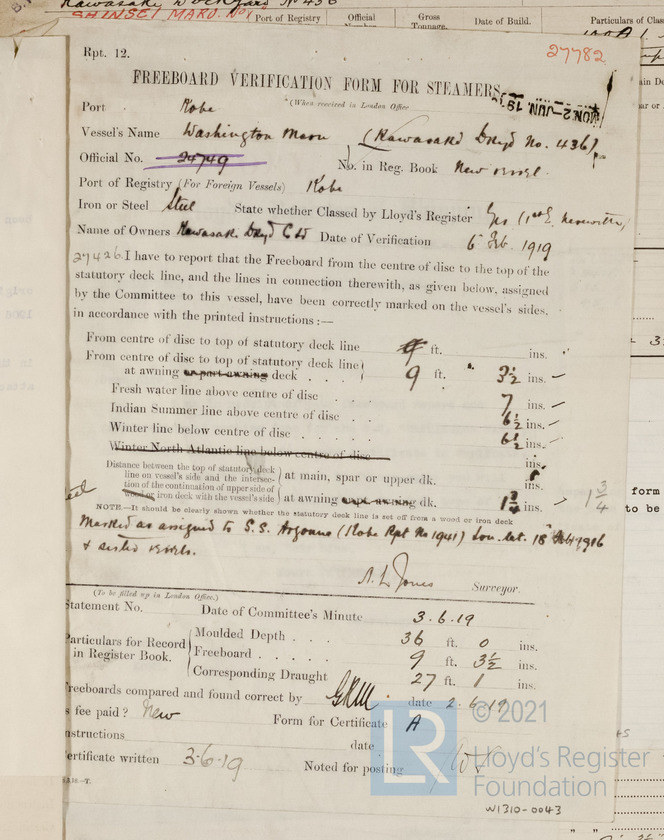 Kawasaki Dockyard No 436
SHINSEI MARU. No 1
Port of Registry
Official No.
Gross Tonnage.
Date of Build.
Particulars of Clas
Rpt. 12.
27782
FREEBOARD VERIFICATION FORM FOR STEAMERS.
(When received in London Office
MON. 2-JUN. 19
Port Kobe
Vessel's Name Washington Maru (Kawasaki Dkyd No. 436)
Official No. 24749
No. in Reg. Book New vessel.
Port of Registry (For Foreign Vessels) Kobe
Iron or Steel Steel State whether Classed by Lloyd's Register Yes (1st E. herewith)
Name of Owners Kawasaki Dkyd C Ld Date of Verification 6 Feb. 1919
27426. I have to report that the Freeboard from the centre of disc to the top of the
statutory deck line, and the lines in connection therewith, as given below, assigned
by the Committee to this vessel, have been correctly marked on the vessel's sides,
in accordance with the printed instructions :—
From centre of disc to top of statutory deck line 9 ft. ins.
From centre of disc to top of statutory deck line
at awning or part awning deck . . . 9 ft. 3½ ins.
Fresh water line above centre of disc . . . 7 ins.
Indian Summer line above centre of disc . . . 6½ ins.
Winter line below centre of disc . . . . . 6½ ins.
Winter North Atlantic line below centre of disc ins.
Distance between the top of statutory deck
line on vessel's side and the intersec-
tion of the continuation of upper side of
wood or iron deck with the vessel's side
at main, spar or upper dk. ins.
at awning or pt. awning dk. 1¾ ins. 1¾
NOTE.—It should be clearly shewn whether the statutory deck line is set off from a wood or iron deck
Marked as assigned to S.S. Argonne (Kobe Rpt No 1941) Lon. let. 18 Feb 1916
& sister vessels.
A. L. Jones Surveyor.
(To be filled up in London Office.)
Statement No. Date of Committee's Minute 3.6.19
Particulars for Record
in Register Book.
Moulded Depth . . . 36 ft. 0 ins.
Freeboard . . . . . 9 ft. 3½ ins.
Corresponding Draught 27 ft. 1 ins.
Freeboards compared and found correct by GRM date 2.6.19
s fee paid? New Form for Certificate A
nstructions date
ertificate written 3.6.19 Noted for posting
form
to be
LR
© 2021
Lloyd's Register
Foundation
W1310-0043